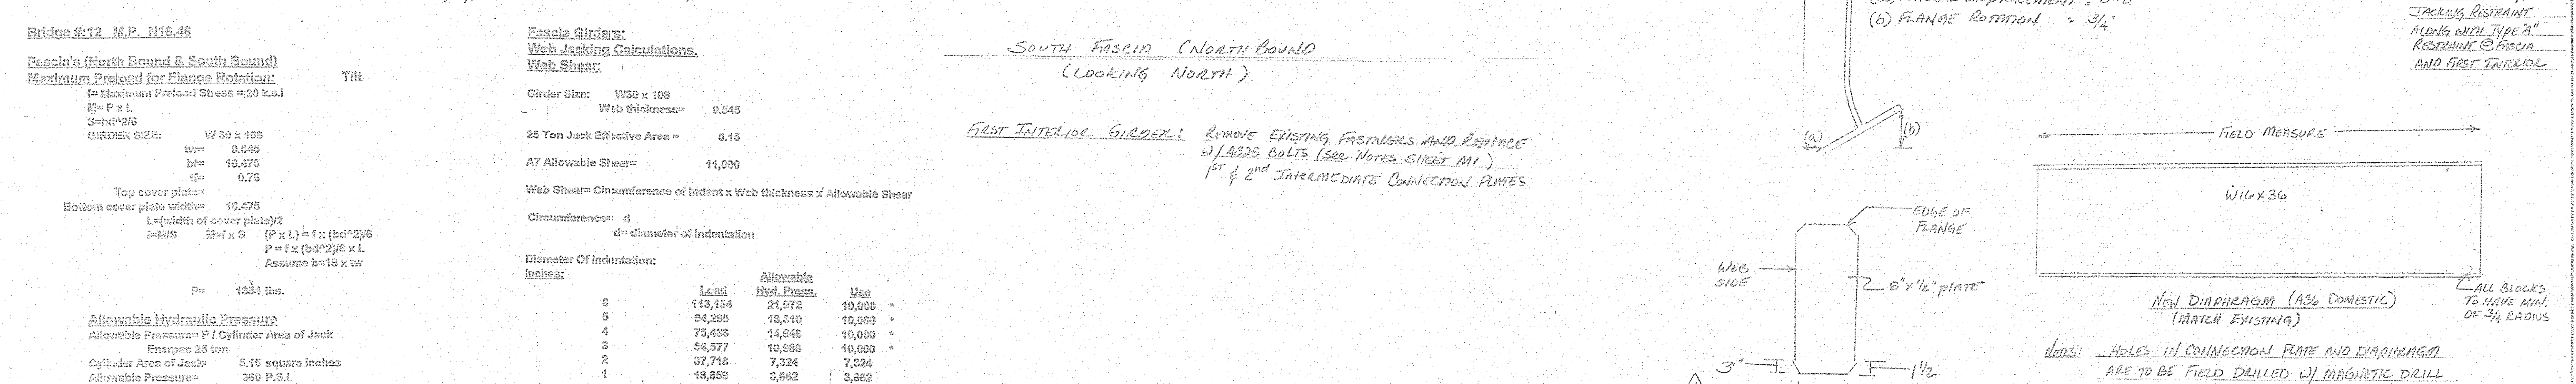 Bridge 6:12 M.P. N16.46
Fascia's (North Bound & South Bound)
Maximum Preload for Flange Rotation: Tilt
f= Maximum Preload Stress =20 k.s.i
M= P x L
S=bd^2/6
GIRDER SIZE: W 30 x 108
tw= 0.545
bf= 10.475
tf= 0.76
Top cover plate=
Bottom cover plate width= 10.475
L=(width of cover plate)/2
f=M/S M=f x S (P x L) = f x (bd^2)/6
P = f x (bd^2)/6 x L
Assume b=18 x tw
P= 1884 lbs.
Allowable Hydraulic Pressure
Allowable Pressure= P / Cylinder Area of Jack
Enerpac 25 ton
Cylinder Area of Jack= 5.15 square inches
Allowable Pressure= 366 P.S.I.
Fascia Girders:
Web Jacking Calculations.
Web Shear:
Girder Size: W30 x 108
Web thickness= 0.545
25 Ton Jack Effective Area = 5.15
A7 Allowable Shear= 11,000
Web Shear= Circumference of Indent x Web thickness x Allowable Shear
Circumference= d
d= diameter of indentation
Diameter Of Indentation:
Inches: Load Allowable Hyd. Press. Use
6 113,154 21,972 10,000 *
5 94,295 18,310 10,000 *
4 75,436 14,648 10,000 *
3 56,577 10,986 10,000 *
2 37,718 7,324 7,324
1 18,859 3,662 3,662
SOUTH FASCIA (NORTH BOUND
(LOOKING NORTH)
FIRST INTERIOR GIRDER: REMOVE EXISTING FASTENERS AND REPLACE
W/ A325 BOLTS (SEE NOTES SHEET M1)
1ST & 2nd INTERMEDIATE CONNECTION PLATES
(b) FLANGE ROTATION = 3/4"
(a)
(b)
JACKING RESTRAINT
ALONG WITH TYPE "A"
RESTRAINT @ FASCIA
AND FIRST INTERIOR
FIELD MEASURE
W16x36
EDGE OF
FLANGE
WEB
SIDE
6" x 1/2" PLATE
3"
1 1/2
NEW DIAPHRAGM (A36 DOMESTIC)
(MATCH EXISTING)
ALL BLOCKS
TO HAVE MIN.
OF 3/4 RADIUS
NOTES: HOLES IN CONNECTION PLATE AND DIAPHRAGM
ARE TO BE FIELD DRILLED W/ MAGNETIC DRILL